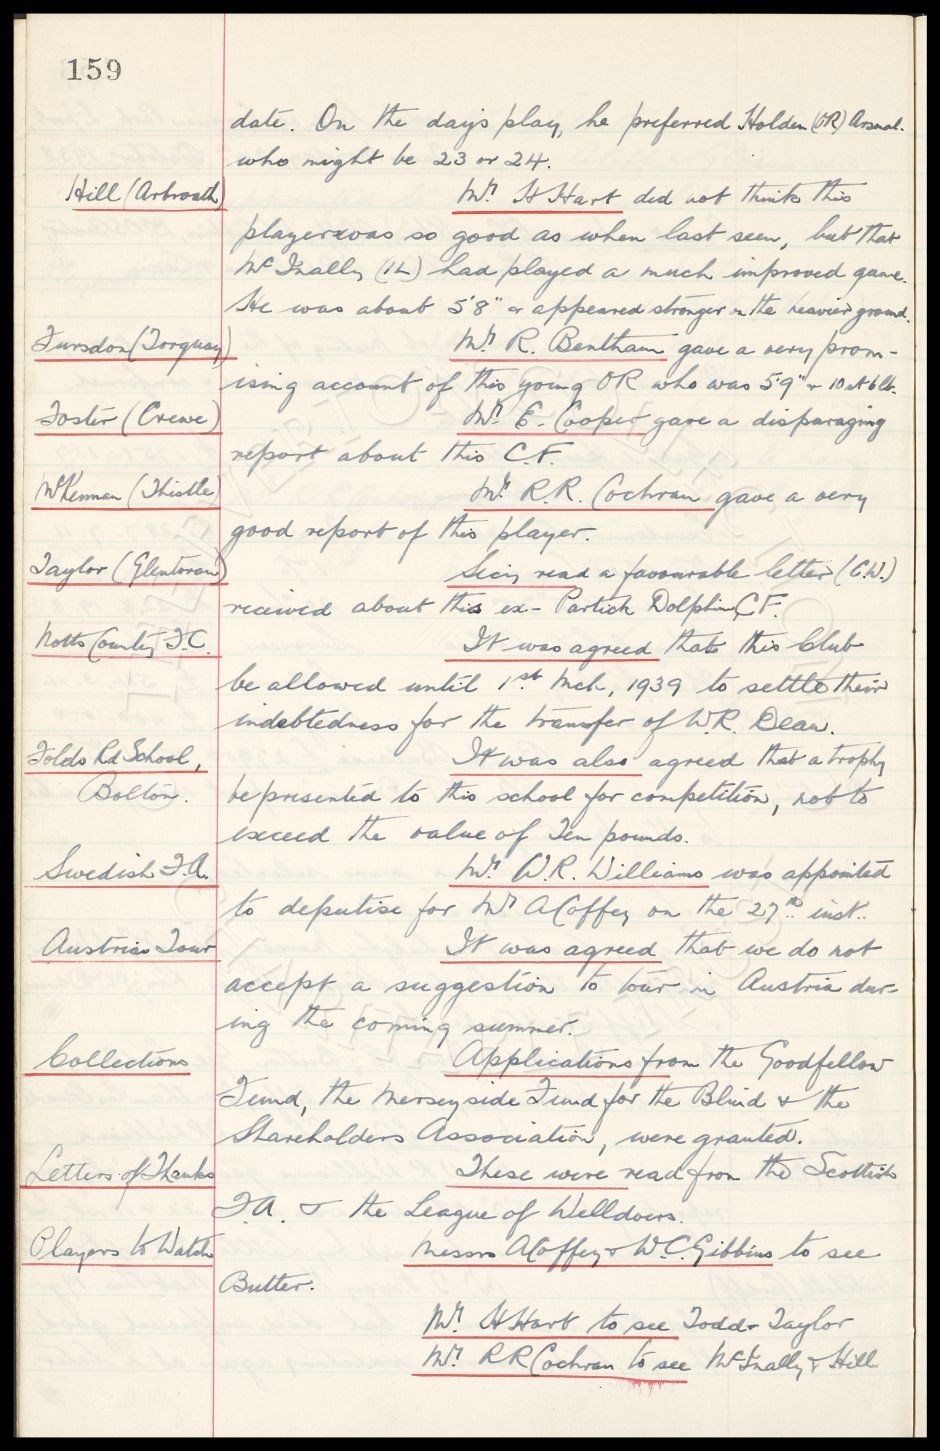 159
date. On the days play, he preferred Holden (OR) Arsenal.
who might be 23 or 24.
Hill (Arbroath) Mr. H Hart did not think this
player was so good as when last seen, but that
McInally (IL) had played a much improved game.
He was about 5'8" & appeared stronger in the heavier ground.
Fursdon (Torquay) Mr. R. Bentham gave a very prom-
ising account of this young OR who was 5'9" & 10 st 6 lb.
Foster (Crewe) Mr. E. Cooper gave a disparaging
report about this C.F.
McKennan (Thistle) Mr. R.R. Cochran gave a very
good report of this player.
Taylor (Glentoran) Secy read a favourable letter (C.W.)
received about this ex- Partick Dolphin C.F.
Notts County F.C. It was agreed that this Club
be allowed until 1st Mch, 1939 to settle their
indebtedness for the transfer of W.R. Dean.
Folds Rd School, It was also agreed that a trophy
Bolton. be presented to this school for competition, not to
exceed the value of Ten pounds.
Swedish F.A. Mr. W.R. Williams was appointed
to deputise for Mr A Coffey on the 27th inst.
Austria Tour It was agreed that we do not
accept a suggestion to tour in Austria dur-
ing the coming summer.
Collections Applications from the Goodfellow
Fund, the Merseyside Fund for the Blind & the
Shareholders Association, were granted.
Letters of Thanks These were read from the Scottish
F.A. & the League of Welldoers.
Players to Watch Messrs A Coffey & W.C. Gibbins to see
Butler.
Mr. H Hart to see Todd & Taylor
Mr. R R Cochran to see McInally & Hill